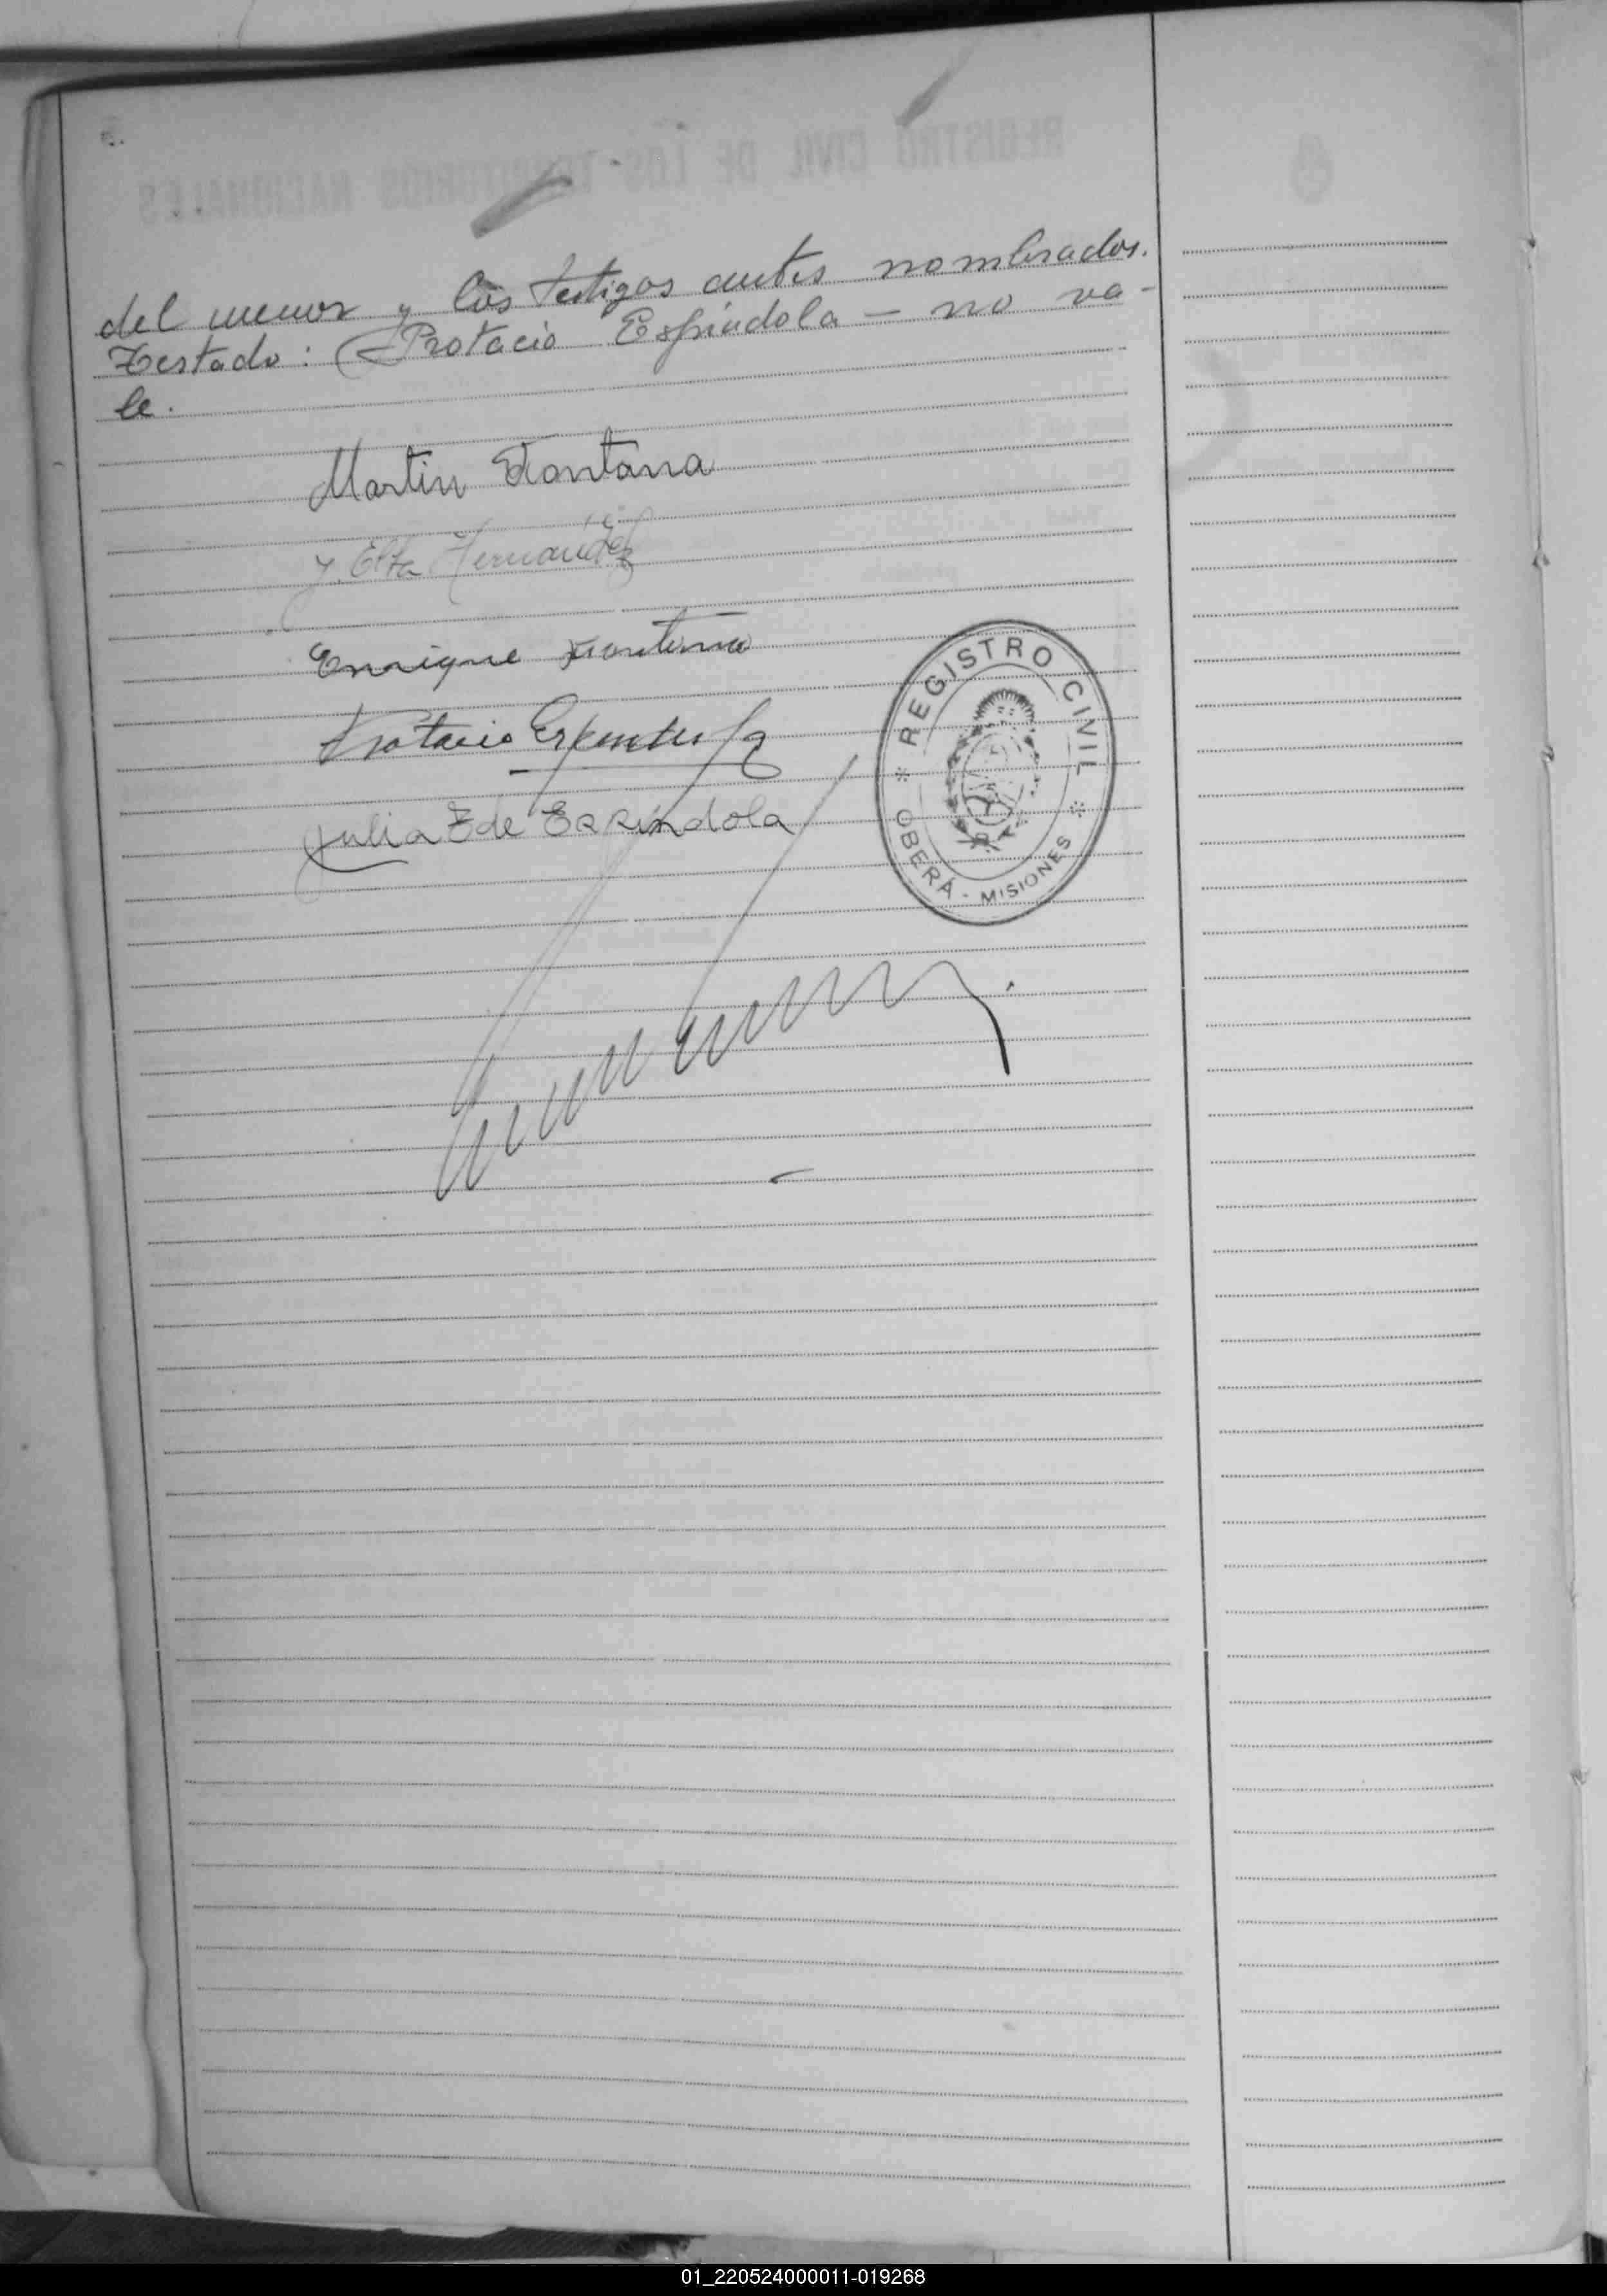 del menor y los testigos antes nombrados.
Testado: Protacio Espíndola — no va-
le.
Martin Fontana
J. Elta Hernández
Enrique Fontana
Protacio Espindola
Julia Z de Espíndola
REGISTRO CIVIL
OBERÁ - MISIONES
01_220524000011-019268